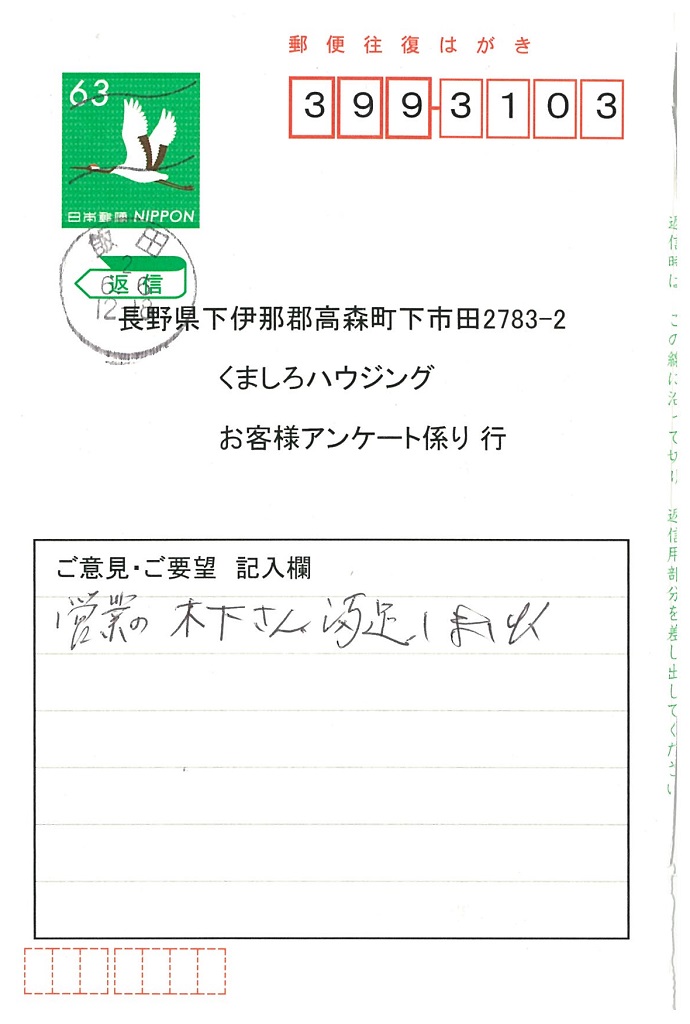 郵便往復はがき
63
399-3103
日本郵便 NIPPON
飯田
2
6 6
12-18
返信
長野県下伊那郡高森町下市田2783-2
くましろハウジング
お客様アンケート係り 行
ご意見・ご要望 記入欄
営業の 木下さん 満足しました
返信時は、この線に沿って切り、返信用部分を差し出してください